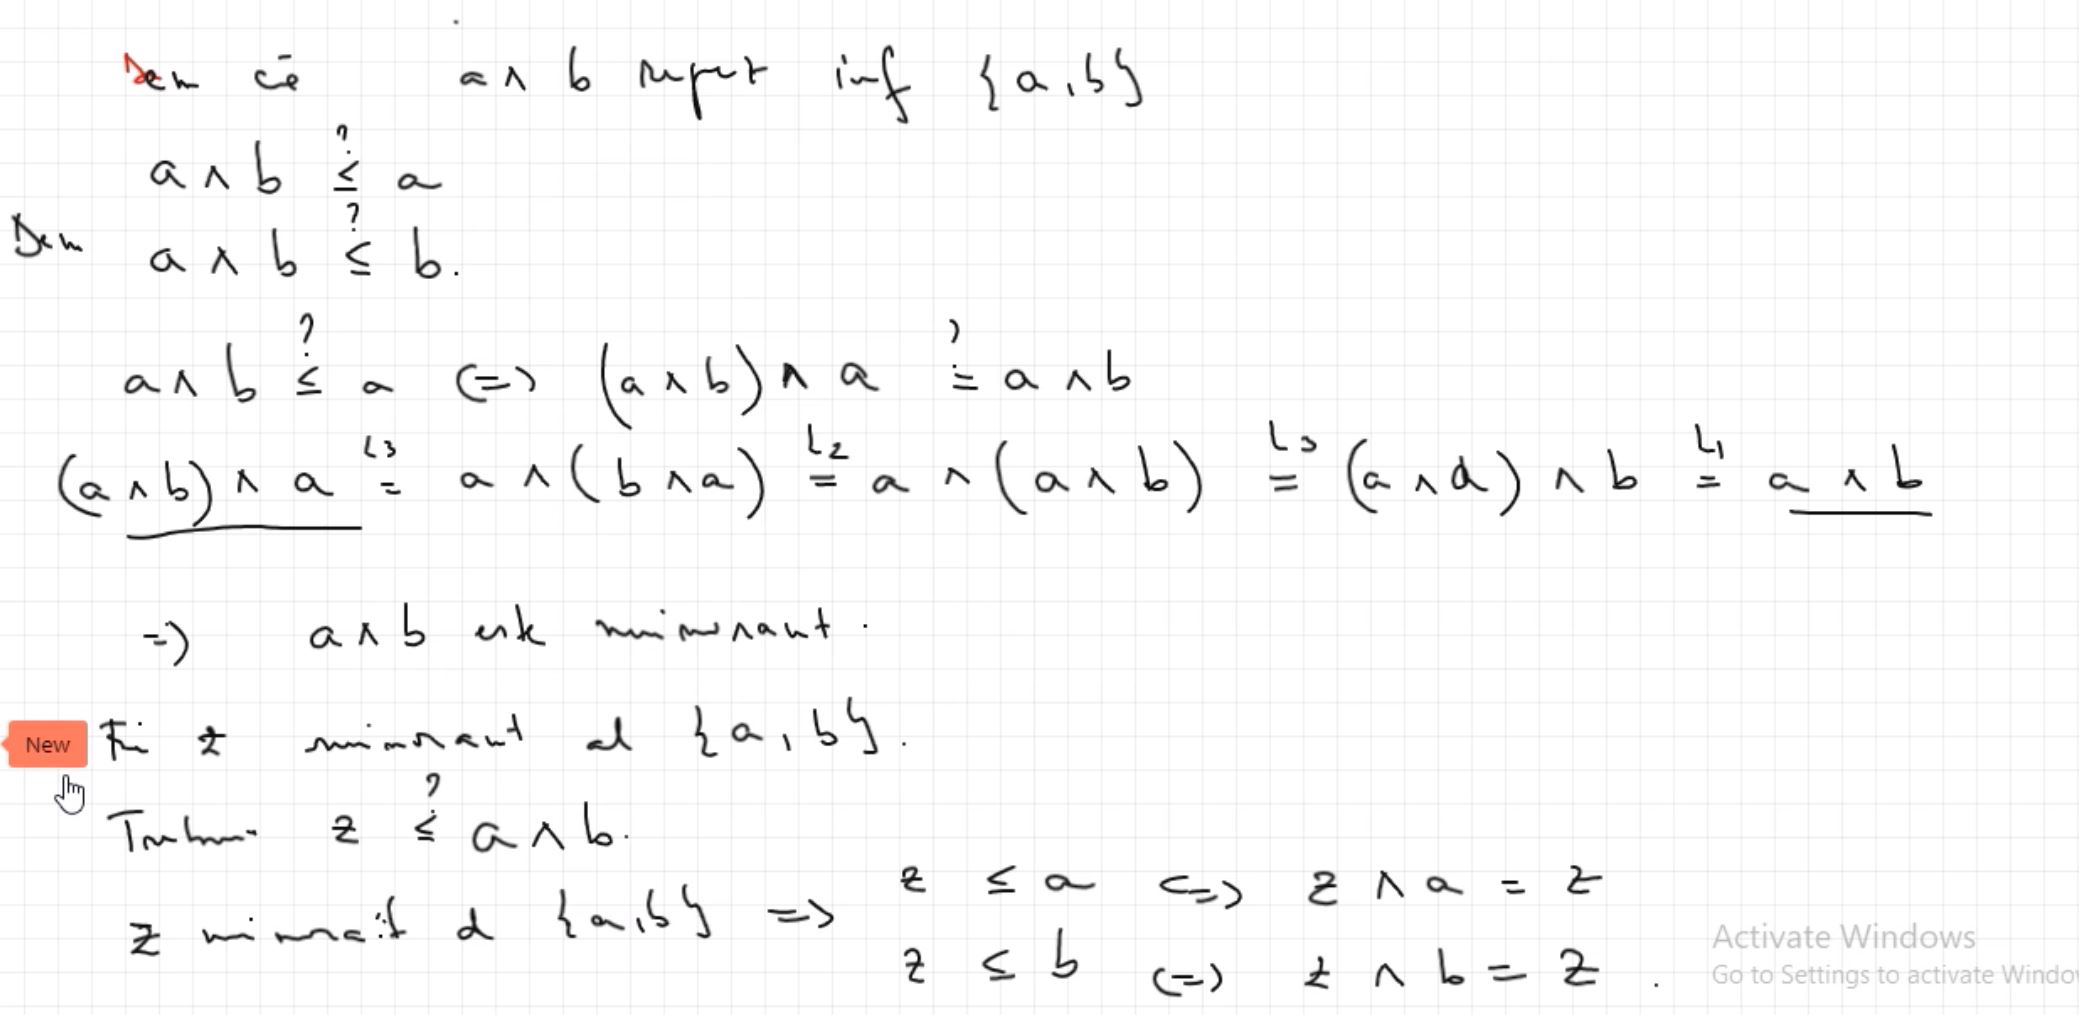 Dem că a ∧ b repr inf {a, b}
a ∧ b ≤? a
Dem a ∧ b ≤? b.
a ∧ b ≤? a (=) (a ∧ b) ∧ a =? a ∧ b
(a ∧ b) ∧ a =L3 a ∧ (b ∧ a) =L2 a ∧ (a ∧ b) =L3 (a ∧ a) ∧ b =L1 a ∧ b
=) a ∧ b este minorant.
New Fie z minorant al {a, b}.
Trebuie z ≤? a ∧ b.
z minorant al {a, b} => z ≤ a <=> z ∧ a = z
z ≤ b (=) z ∧ b = z.
Activate Windows
Go to Settings to activate Windo